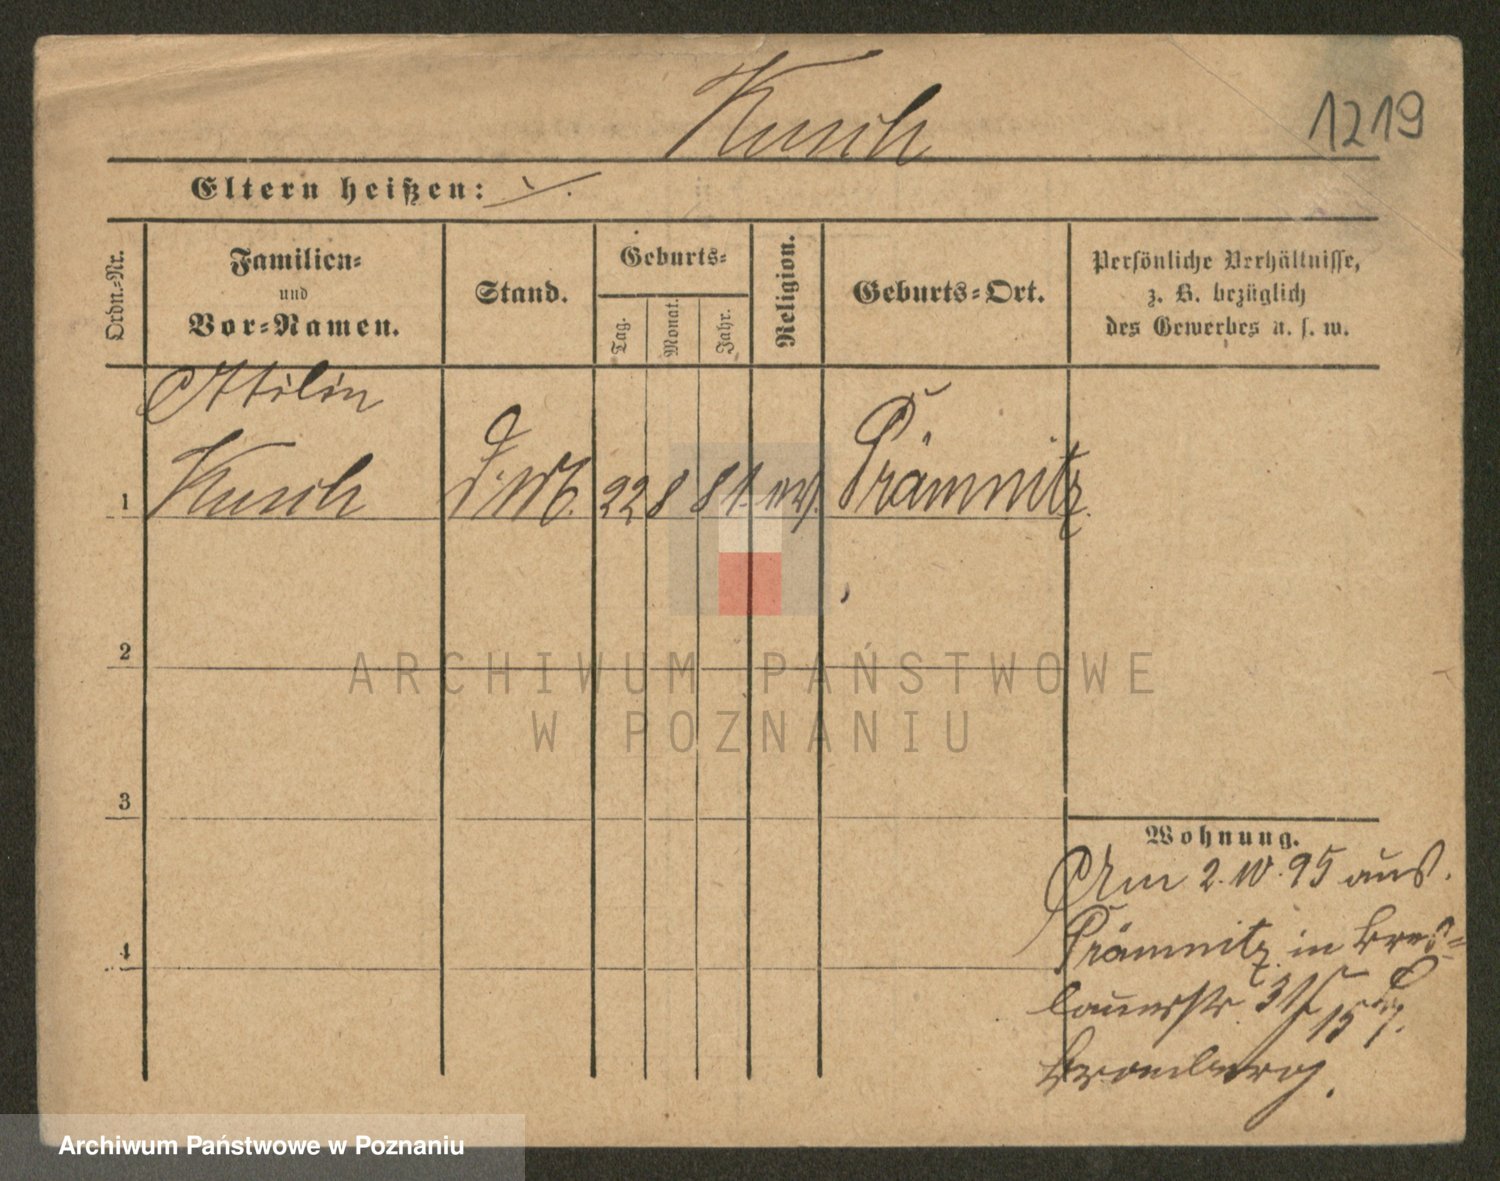 Kusch
1219
Eltern heißen:
Ordn.-Nr.
Familien-
und
Vor-Namen.
Stand.
Geburts-
Tag.
Monat.
Jahr.
Religion.
Geburts-Ort.
Persönliche Verhältnisse,
z. B. bezüglich
des Gewerbes u. s. w.
Ottilie
1 Kusch 22 8 81. ev. Prämnitz
2
ARCHIWUM PAŃSTWOWE
W POZNANIU
3
Wohnung.
Am 2. 10. 95 aus.
Prämnitz in Bres-
lauerstr. 31/
15/7.
Bromberg.
4
Archiwum Państwowe w Poznaniu